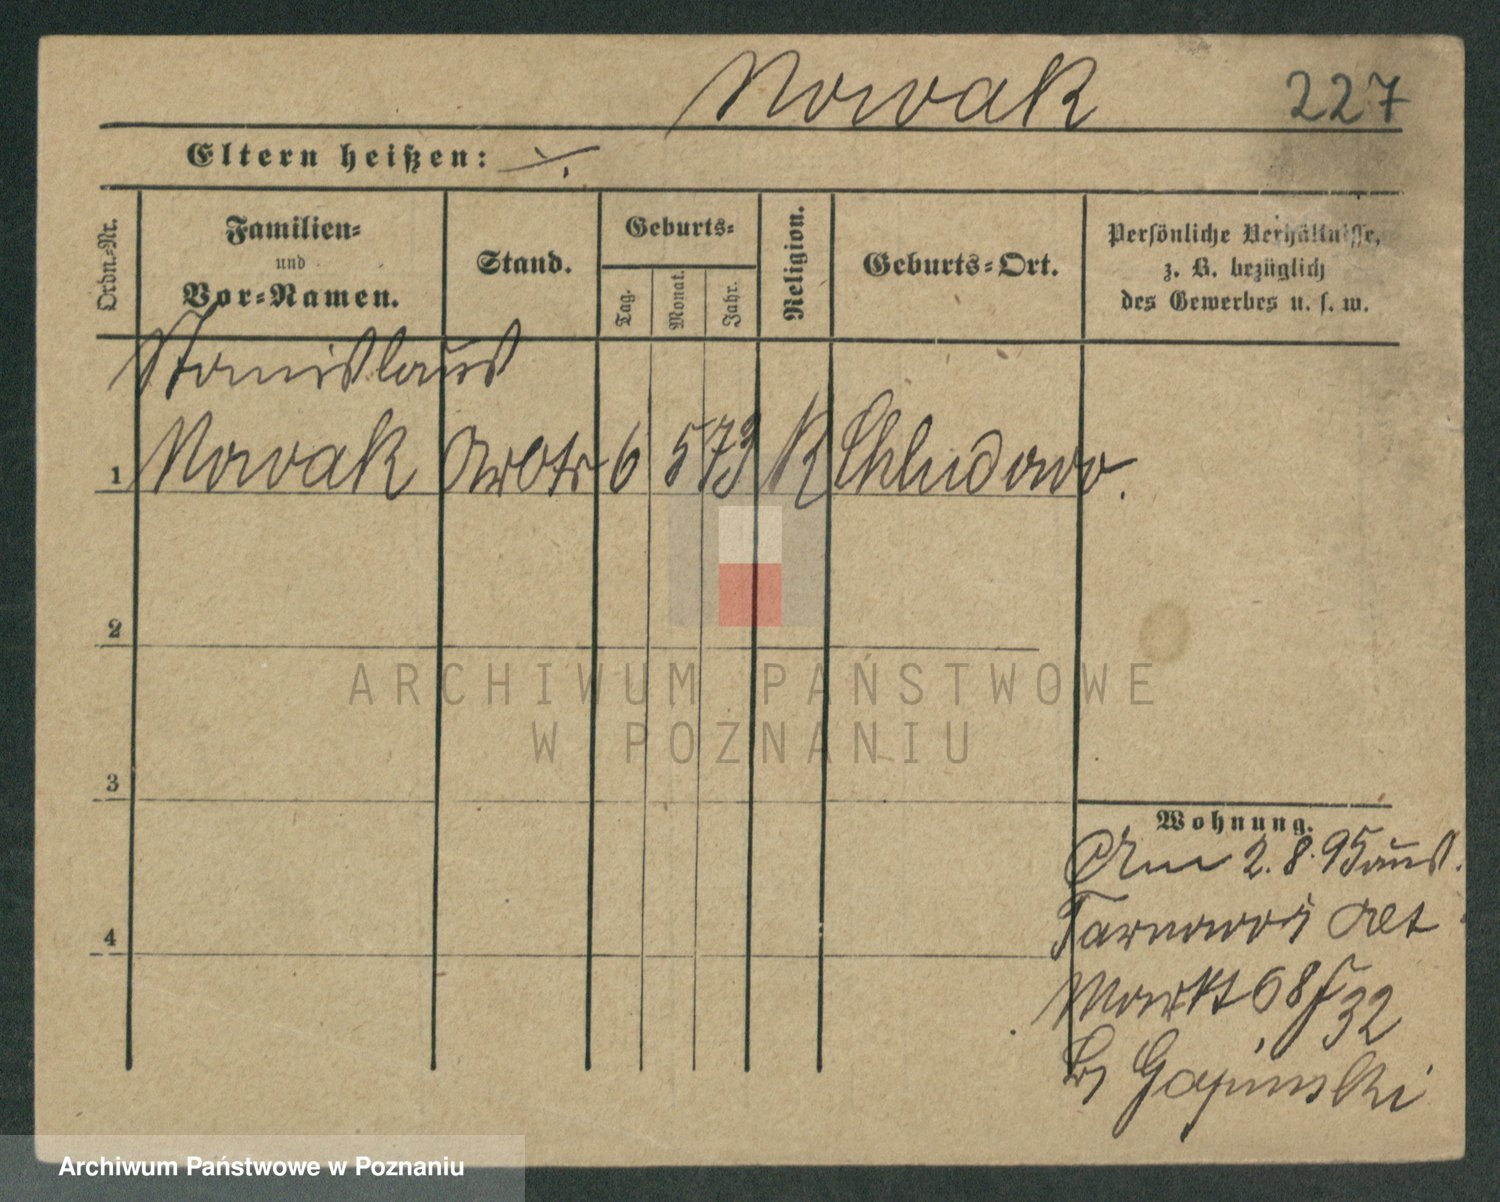 Nowak 227
Eltern heißen: ./.
Ordn.-Nr.
Familien-
und
Vor-Namen.
Stand.
Geburts-
Tag.
Monat.
Jahr.
Religion.
Geburts-Ort.
Persönliche Verhältnisse,
z. B. bezüglich
des Gewerbes u. s. w.
Stanislaus
1 Nowak Arbtr 6 5 73 K Chludowo.
2
3
4
Wohnung.
Am 2.8.95 aus
Tarnowo, Alt
Markt 68/
32
b/
ARCHIWUM PAŃSTWOWE
W POZNANIU
Archiwum Państwowe w Poznaniu